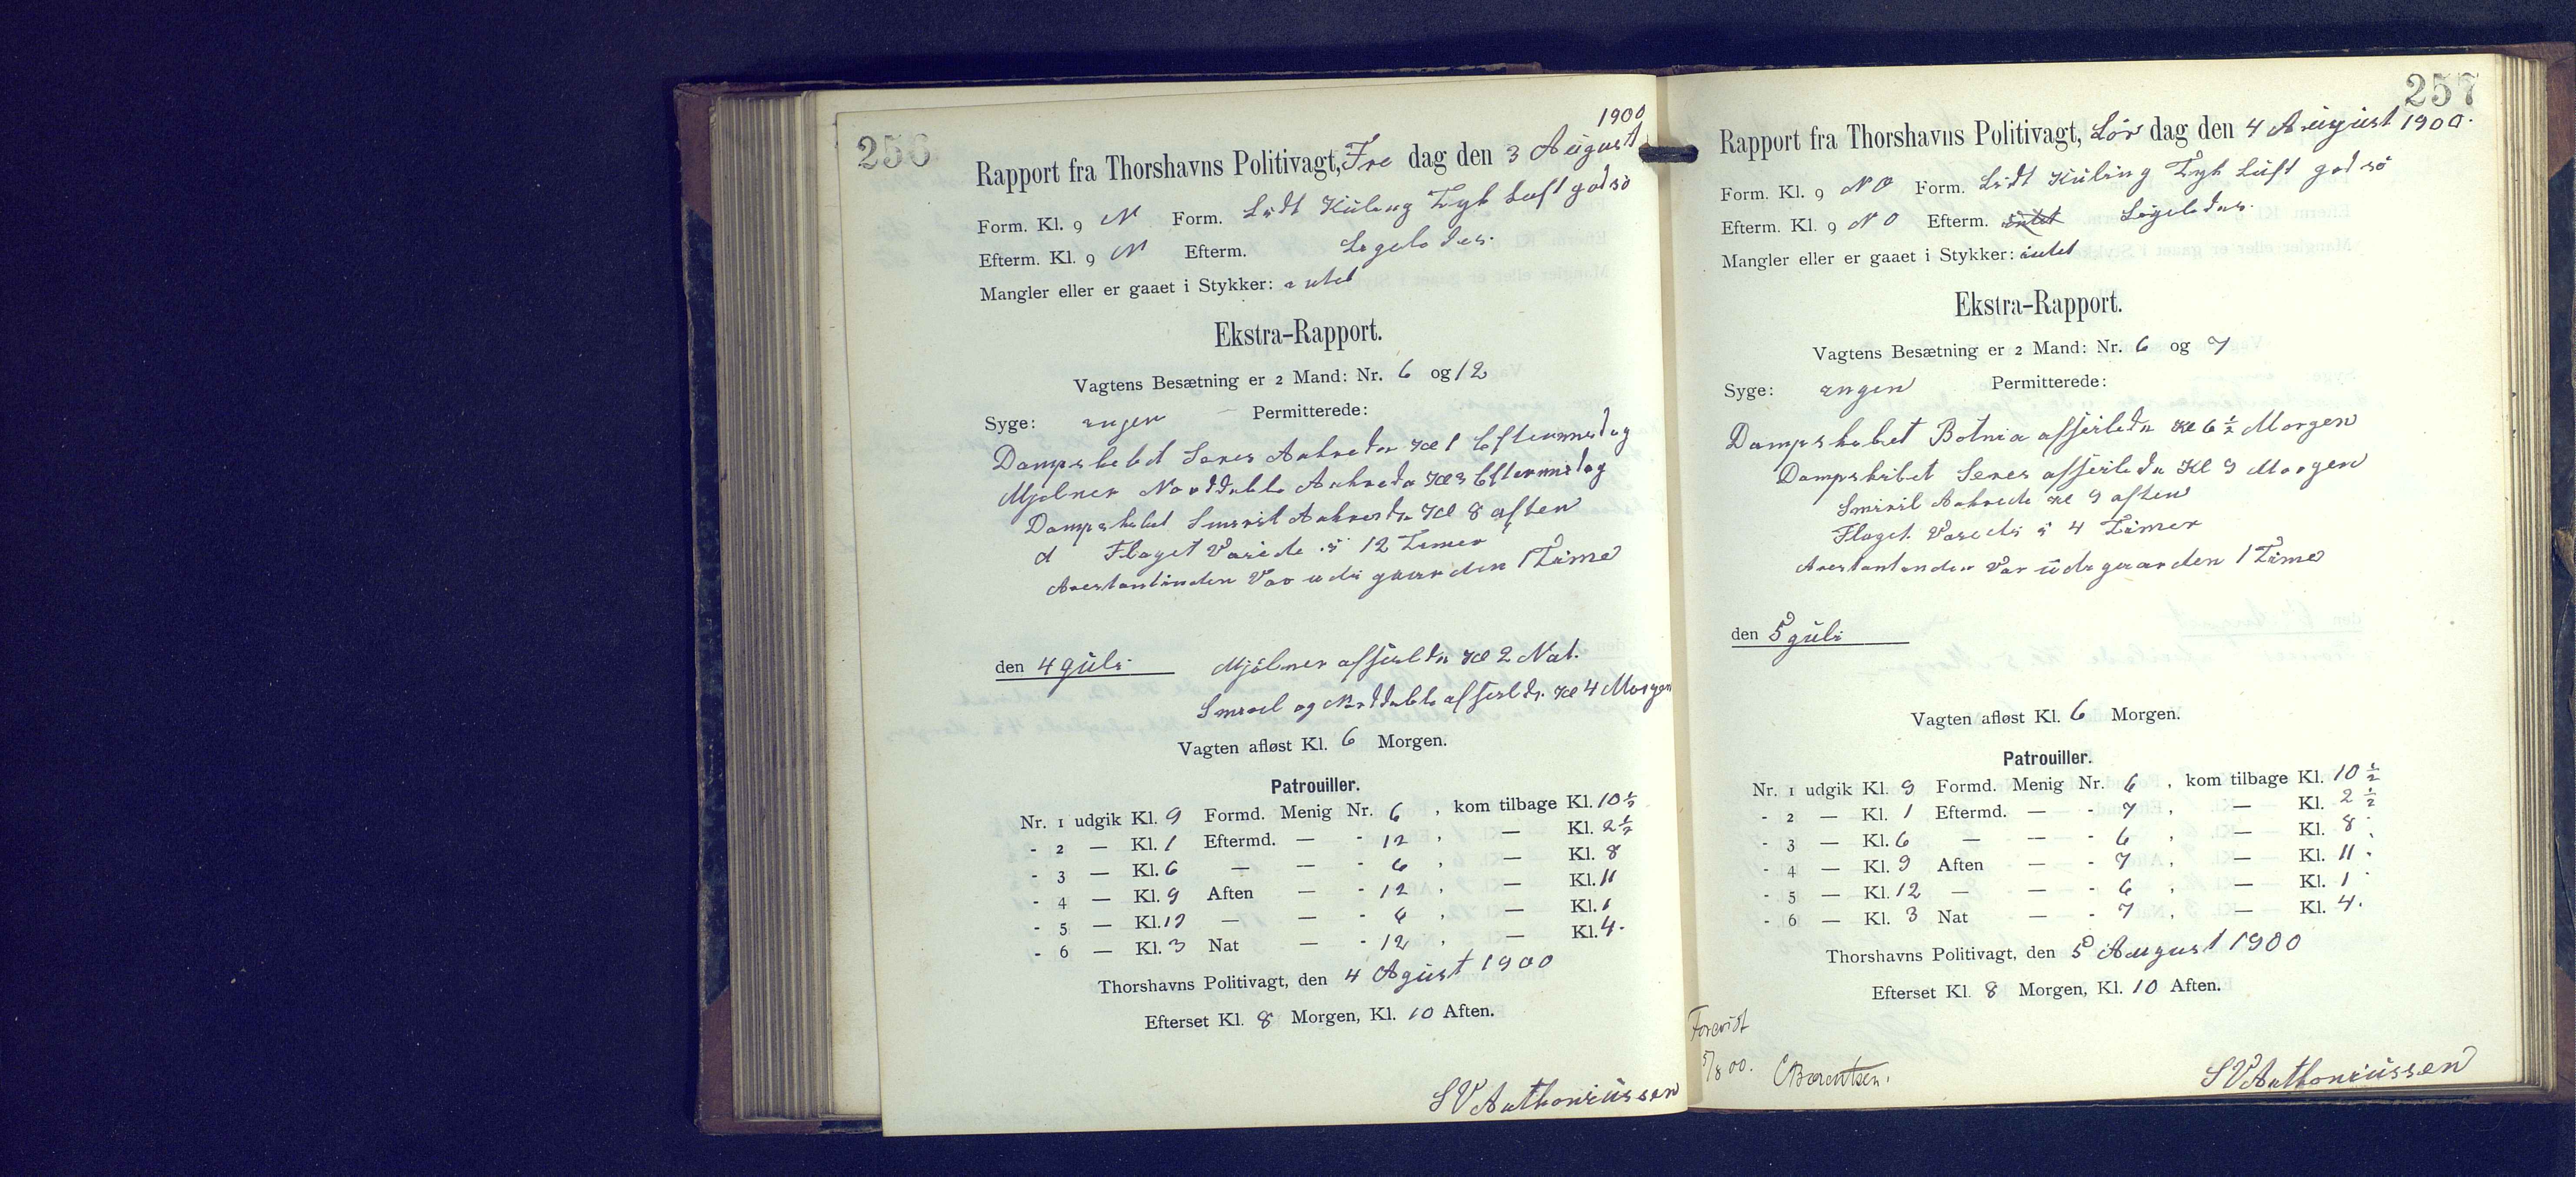 256
1900
Rapport fra Thorshavns Politivagt, Fre dag den 3 August
Form. Kl. 9 N Form. Lidt Kuling Tyk Luft god sö
Efterm. Kl. 9 N Efterm. Ligeledes.
Mangler eller er gaaet i Stykker: intet
Ekstra-Rapport.
Vagtens Besætning er 2 Mand: Nr. 6 og 12
Syge: ingen Permitterede:
Dampskibet Seres Ankrede Kl 1 Eftermidag
Mjølner Norddeble Ankrede Kl 3 Eftermidag
Dampskibet Smiril Ankrede Kl 8 aften
d Flaget Vaiede i 12 Timer
Arestantinden Var udi gaarden 1 Time
den 4 guli Mjölner afseilede Kl 2 Nat.
Smiril og Norddeble afseilede Kl 4 Morgen
Vagten afløst Kl. 6 Morgen.
Patrouiller.
Nr. 1 udgik Kl. 9 Formd. Menig Nr. 6 , kom tilbage Kl. 10 1/2
- 2 — Kl. 1 Eftermd. — - 12 , — Kl. 2 1/2
- 3 — Kl. 6 — — - 6 , — Kl. 8
- 4 — Kl. 9 Aften — - 12 , — Kl. 11
- 5 — Kl. 12 — — - 6 , — Kl. 1
- 6 — Kl. 3 Nat — - 12 , — Kl. 4.
Thorshavns Politivagt, den 4 Agust 1900
Efterset Kl. 8 Morgen, Kl. 10 Aften.
S V Anthoniussen
257
Rapport fra Thorshavns Politivagt, Lör dag den 4 August 1900.
Form. Kl. 9 NO Form. Lidt Kuling Tyk Luft god sö
Efterm. Kl. 9 NO Efterm. intet Ligeledes.
Mangler eller er gaaet i Stykker: intet
Ekstra-Rapport.
Vagtens Besætning er 2 Mand: Nr. 6 og 7
Syge: ingen Permitterede:
Dampskibet Botnia afseilede Kl 6 1/2 Morgen
Dampskibet Seres afseilede Kl 9 Morgen
Smiril Ankrede Kl 9 aften
Flaget Vaiede i 4 Timer
Arestantinden Var udi gaarden 1 Time
den 5 guli
Vagten afløst Kl. 6 Morgen.
Patrouiller.
Nr. 1 udgik Kl. 9 Formd. Menig Nr. 6 , kom tilbage Kl. 10 1/2
- 2 — Kl. 1 Eftermd. — - 7 , — Kl. 2 1/2
- 3 — Kl. 6 — — - 6 , — Kl. 8
- 4 — Kl. 9 Aften — - 7 , — Kl. 11
- 5 — Kl. 12 — — - 6 , — Kl. 1
- 6 — Kl. 3 Nat — - 7 , — Kl. 4.
Thorshavns Politivagt, den 5 August 1900
Efterset Kl. 8 Morgen, Kl. 10 Aften.
Forevist
5/8 00. CBærentsen.
S V Anthoniussen